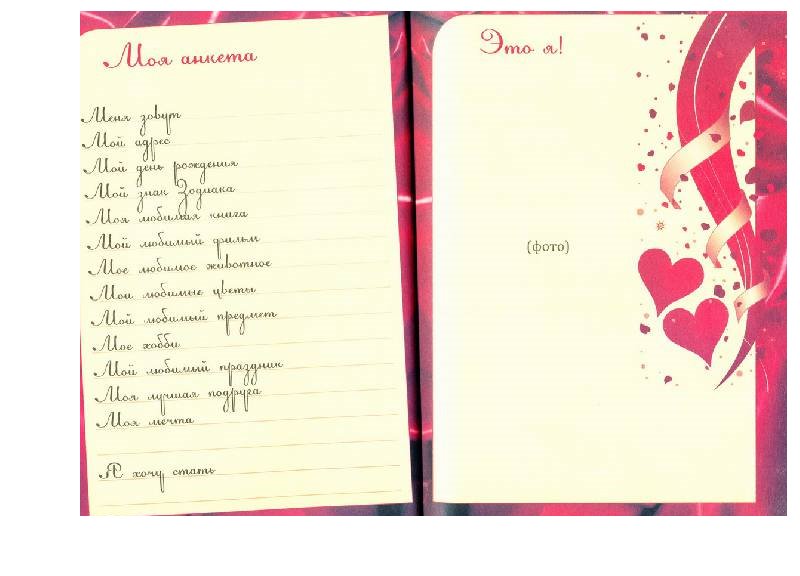 Моя анкета
Меня зовут
Мой адрес
Мой день рождения
Мой знак Зодиака
Моя любимая книга
Мой любимый фильм
Мое любимое животное
Мои любимые цветы
Мой любимый предмет
Мое хобби
Мой любимый праздник
Моя лучшая подруга
Моя мечта
Я хочу стать
Это я!
(фото)